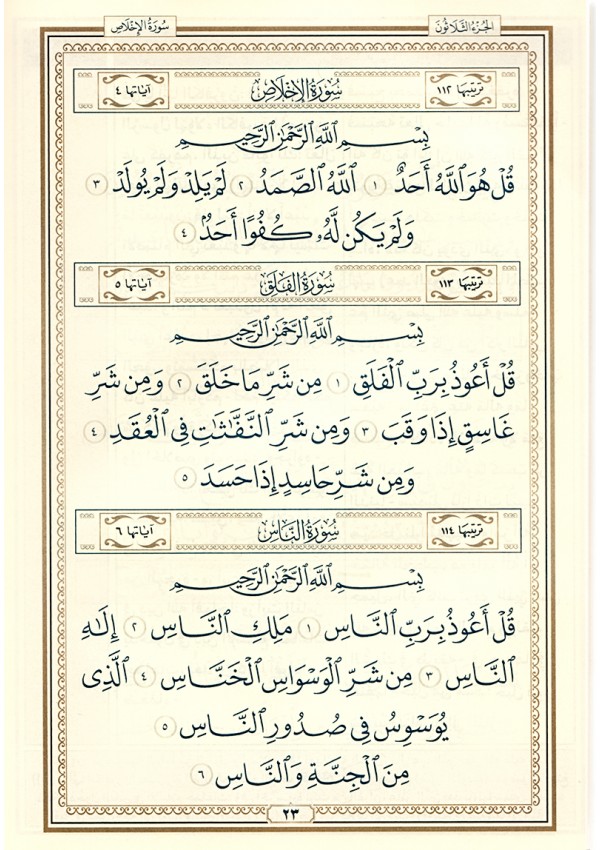 الجزء الثلاثون
سورة الإخلاص
ترتيبها ١١٢ سُورَةُ الإِخْلَاصِ آياتها ٤
بِسْمِ اللَّهِ الرَّحْمَٰنِ الرَّحِيمِ
قُلْ هُوَ اللَّهُ أَحَدٌ ١ اللَّهُ الصَّمَدُ ٢ لَمْ يَلِدْ وَلَمْ يُولَدْ ٣
وَلَمْ يَكُن لَّهُۥ كُفُوًا أَحَدٌۢ ٤
ترتيبها ١١٣ سُورَةُ الفَلَقِ آياتها ٥
بِسْمِ اللَّهِ الرَّحْمَٰنِ الرَّحِيمِ
قُلْ أَعُوذُ بِرَبِّ الْفَلَقِ ١ مِن شَرِّ مَا خَلَقَ ٢ وَمِن شَرِّ
غَاسِقٍ إِذَا وَقَبَ ٣ وَمِن شَرِّ النَّفَّٰثَٰتِ فِي الْعُقَدِ ٤
وَمِن شَرِّ حَاسِدٍ إِذَا حَسَدَ ٥
ترتيبها ١١٤ سُورَةُ النَّاسِ آياتها ٦
بِسْمِ اللَّهِ الرَّحْمَٰنِ الرَّحِيمِ
قُلْ أَعُوذُ بِرَبِّ النَّاسِ ١ مَلِكِ النَّاسِ ٢ إِلَٰهِ
النَّاسِ ٣ مِن شَرِّ الْوَسْوَاسِ الْخَنَّاسِ ٤ الَّذِي
يُوَسْوِسُ فِي صُدُورِ النَّاسِ ٥
مِنَ الْجِنَّةِ وَالنَّاسِ ٦
٢٣